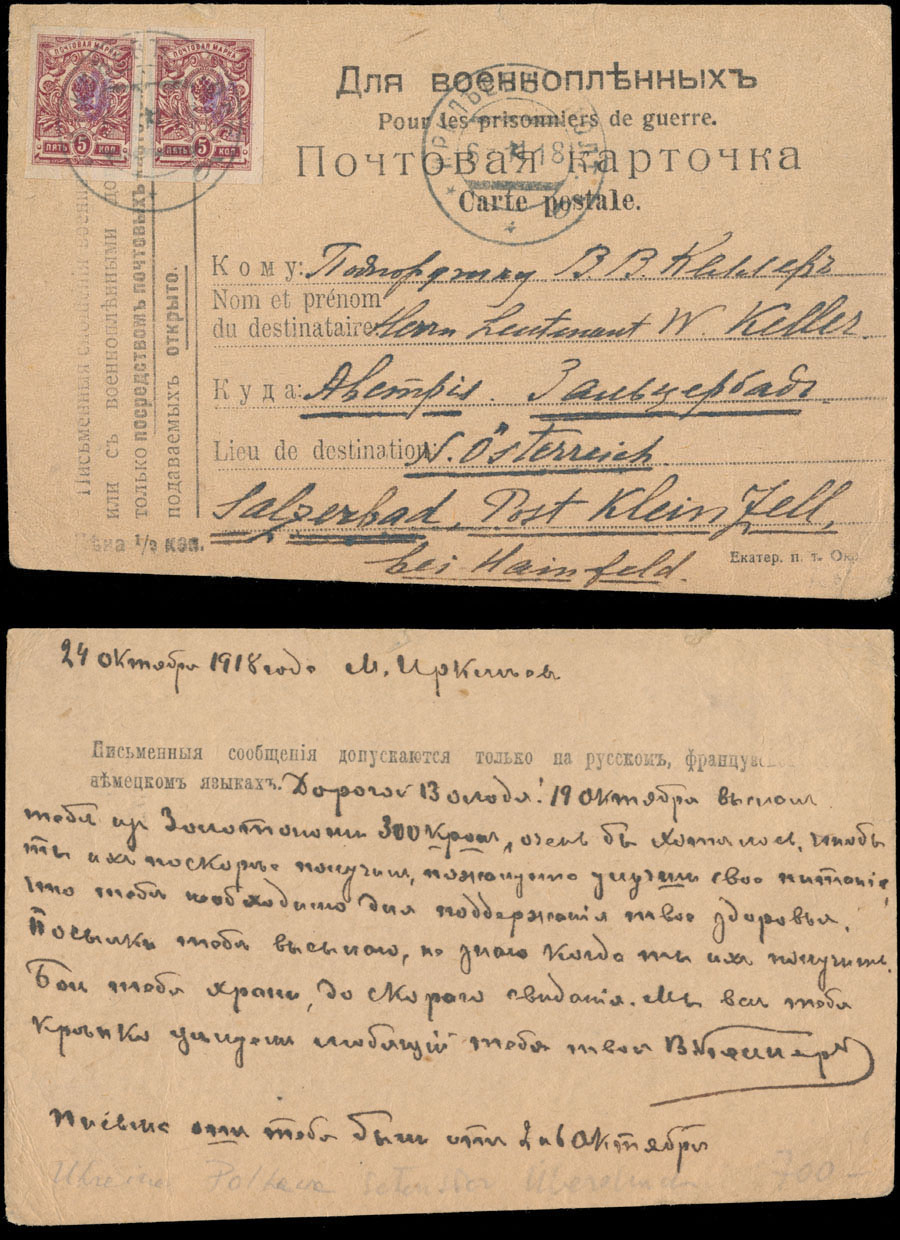 ПОЧТОВАЯ МАРКА ПОЧТОВАЯ МАРКА
5 5
ПЯТЬ КОП. ПЯТЬ КОП.
Для военноплѣнныхъ
Pour les prisonniers de guerre.
Почтовая карточка
Carte postale.
18
Кому: В. В. Келлеръ
Nom et prénom
du destinataire: Herrn Leutenant W. Keller
Куда: Австрія. Зальцербадъ
Lieu de destination: N. Österreich
Salzerbad, Post Klein Zell,
bei Hainfeld.
Екатер. п. т. Окр.
Письменныя сношенія
или съ военноплѣнными
только посредствомъ почтовыхъ
подаваемыхъ открыто.
Цѣна 1/2 коп.
24 Октября 1918 года М. Ирклѣевъ
Письменныя сообщенія допускаются только на русскомъ,
нѣмецкомъ языкахъ. Дорогой Володя! 19 Октября выслал
тебѣ из Золотоноши 300 крон, очень бы хотѣлось, чтобы
ты их поскорѣе получил, пожалуйста улучши свое питаніе,
что тебѣ необходимо для поддержанія твоего здоровья.
Посылки тебѣ высылаю, но знаю когда ты их получишь.
Бог тебя храни, до скораго свиданія. Мы все тебя
крѣпко цѣлуем любящій тебя твой В Келлеръ
от тебя были от 2 и 6 Октября
Ukraine Poltava
700-